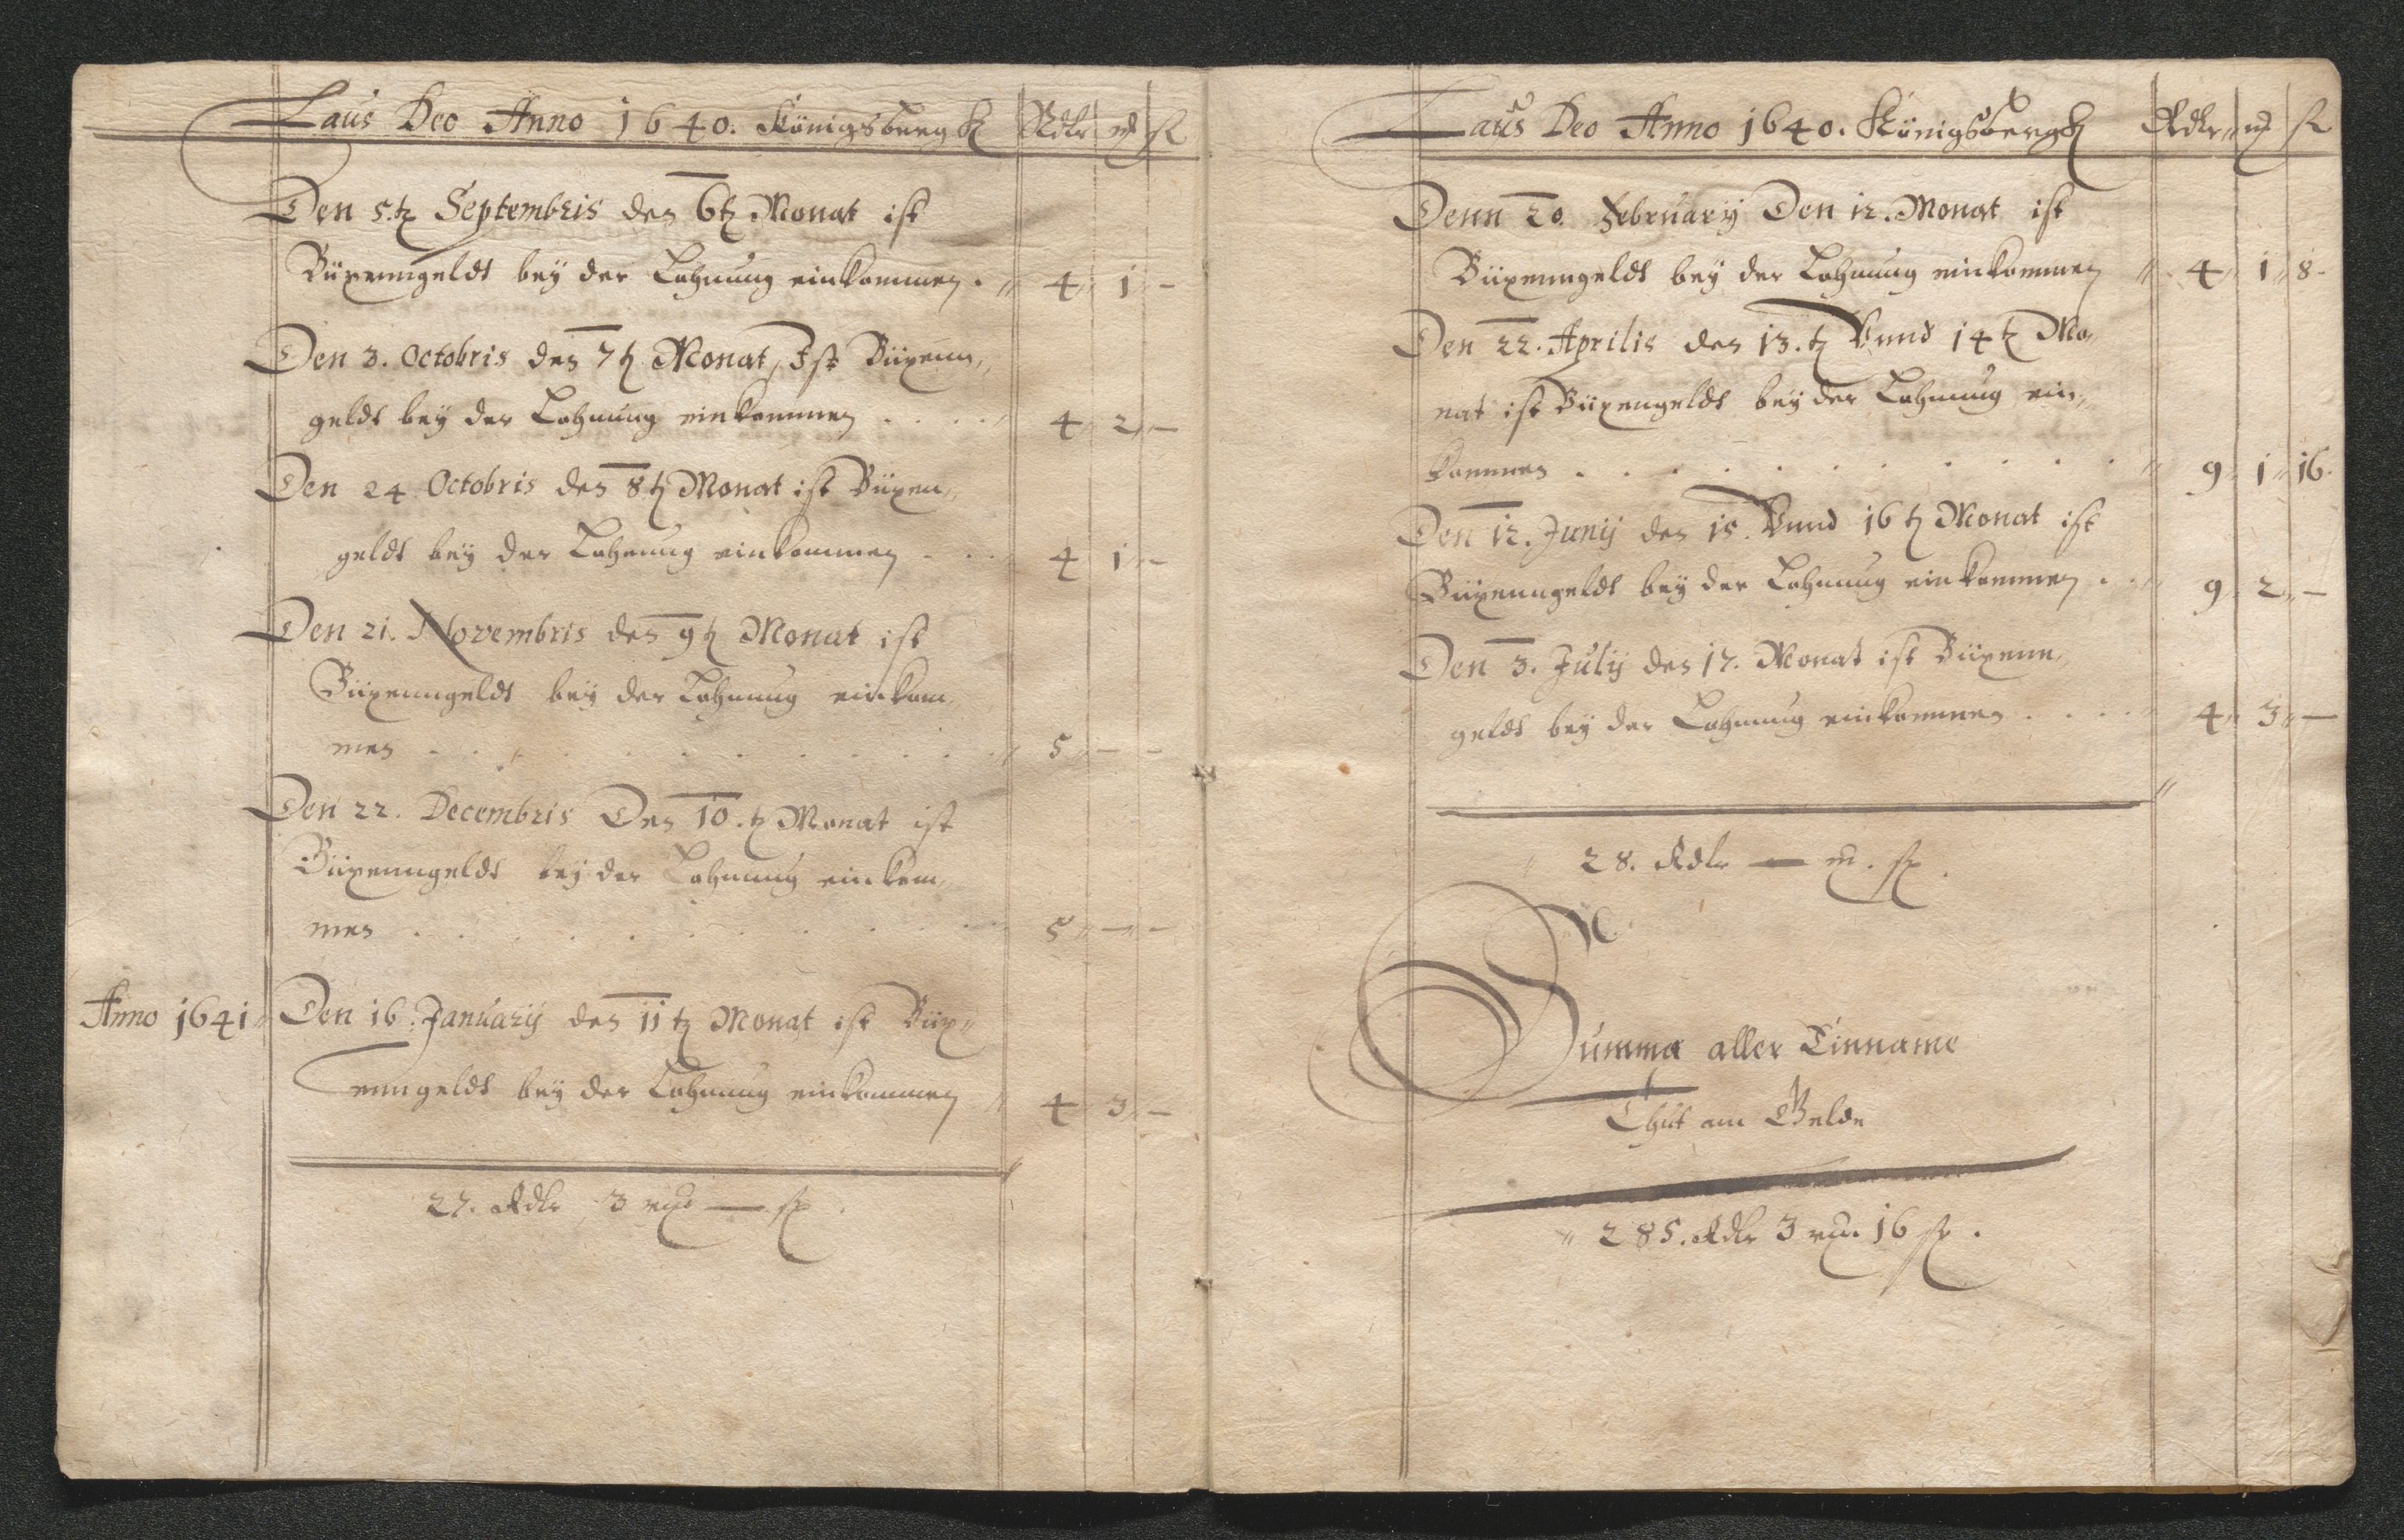 Laus Deo Anno 1640. Königsbergk Rdlr mk ß
Den 5.tz Septembris des 6tz Monat ist
Büxenngeldt bey der Lohnung einkommen. 4 1 -
Den 3. Octobris des 7tz Monat, Ist Büxenn,,
geldt bey der Lohnung einkommen . . . . 4 2 -
Den 24 Octobris des 8tz Monat ist Büxen,,
geldt bey der Lohnung einkommen . . . 4 1 -
Den 21. Novembris des 9tz Monat ist
Büxenngeldt bey der Lohnung einkom,
men . . . . . . . . . . 5 - -
Den 22. Decembris Des 10.tz Monat ist
Büxenngeldt bey der Lohnung einkom,,
men . . . . . . . . . . 5 - -
Anno 1641 Den 16. January des 11tz Monat ist Büx,,
enngeldt bey der Lohnung einkommen 4 3 -
27. Rdlr 3 mk — ß.
Laus Deo Anno 1640. Königsbergk Rdlr mk ß
Denn 20. February Den 12. Monat ist
Büxenngeldt bey der Lohnung einkommen 4 1 8.
Den 22. Aprilis des 13.tz Vnnd 14tz Mo,
nat ist Büxengeldt bey der Lohnung ein,,
kommen . . . . . . . . . . 9 1 16.
Den 12. Junij des 15. Vnnd 16tz Monat ist
Büxenngeldt bey der Lohnung einkommen . . 9 2 -
Den 3. July des 17. Monat ist Büxenn,
geldt bey der Lohnung einkommen . . . . 4 3 —
28. Rdlr — m. ß.
Summa aller Einname
Thut am Gelde
285. Rdlr 3 m. 16 ß.